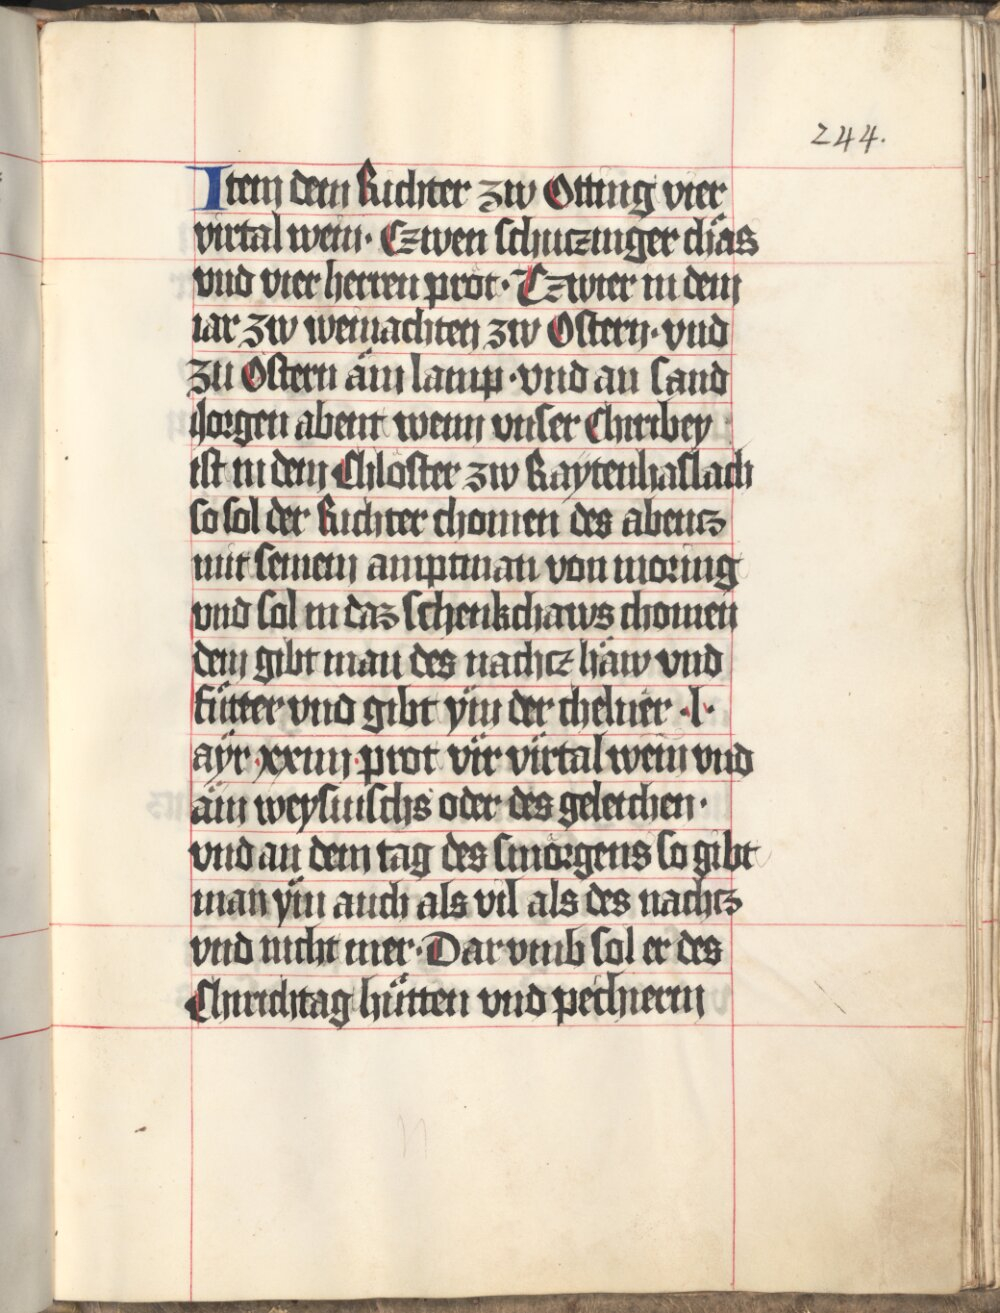 244.
Item dem Richter zw Otting vier
virtal wein · Czwen schuczinger chäs
vnd vier herren pröt · Czwier in dem
iar zw weinachten zw Ostern · vnd
zu Ostern äin lamp · vnd an sand
Jorgen abent wenn vnser Chiribey
ist in dem Chloster zw Raytenhaslach
so sol der Richter chomen des abencz
mit seinem amptman von moring
vnd sol in daz schenkchaws chomen
dem gibt man des nachcz häw vnd
fütter vnd gibt ÿm der chelner · l ·
aÿr · xxiiij · prot vir virtal wein vnd
äin weysiuschs oder des geleichen ·
vnd an dem tag des smörgens so gibt
man ÿm auch als vil als des nachcz
vnd nicht mer · Dar vmb sol er des
Chirichtag hütten vnd pechierm